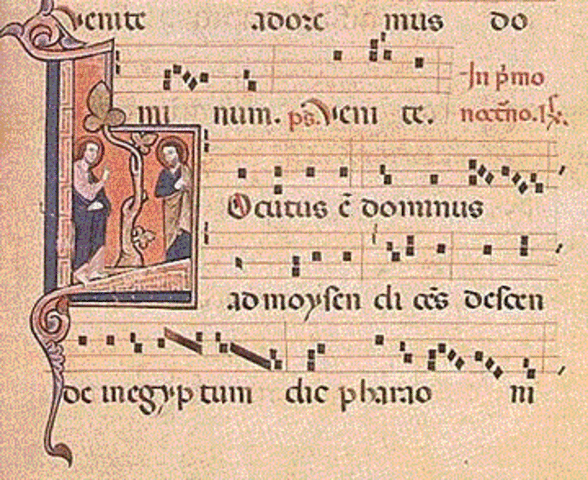 Venite adore mus do
In p̄mo
mi num. ps. Veni te. noct̄no.
LOcutus ē dominus
ad moysen di cēs descen
de in egyp tum dic pharao ni